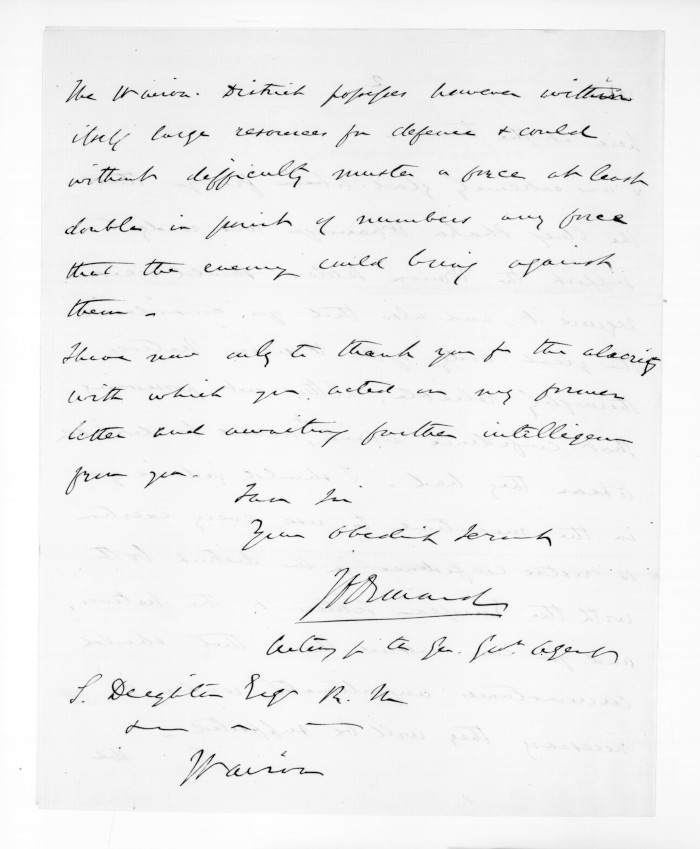 The Wairoa District possesses however within
itself large resources for defence & could
without difficulty muster a force at least
double in point of numbers any force
that the enemy could bring against
them -
I have now only to thank you for the alacrity
with which you acted on my former
letter and awaiting further intelligence
from you.
I am Sir
Your Obedient Servant
J D Ormond
Acting for the Gen. Govt. Agent
S. Deighton Esqr R. M
Wairoa